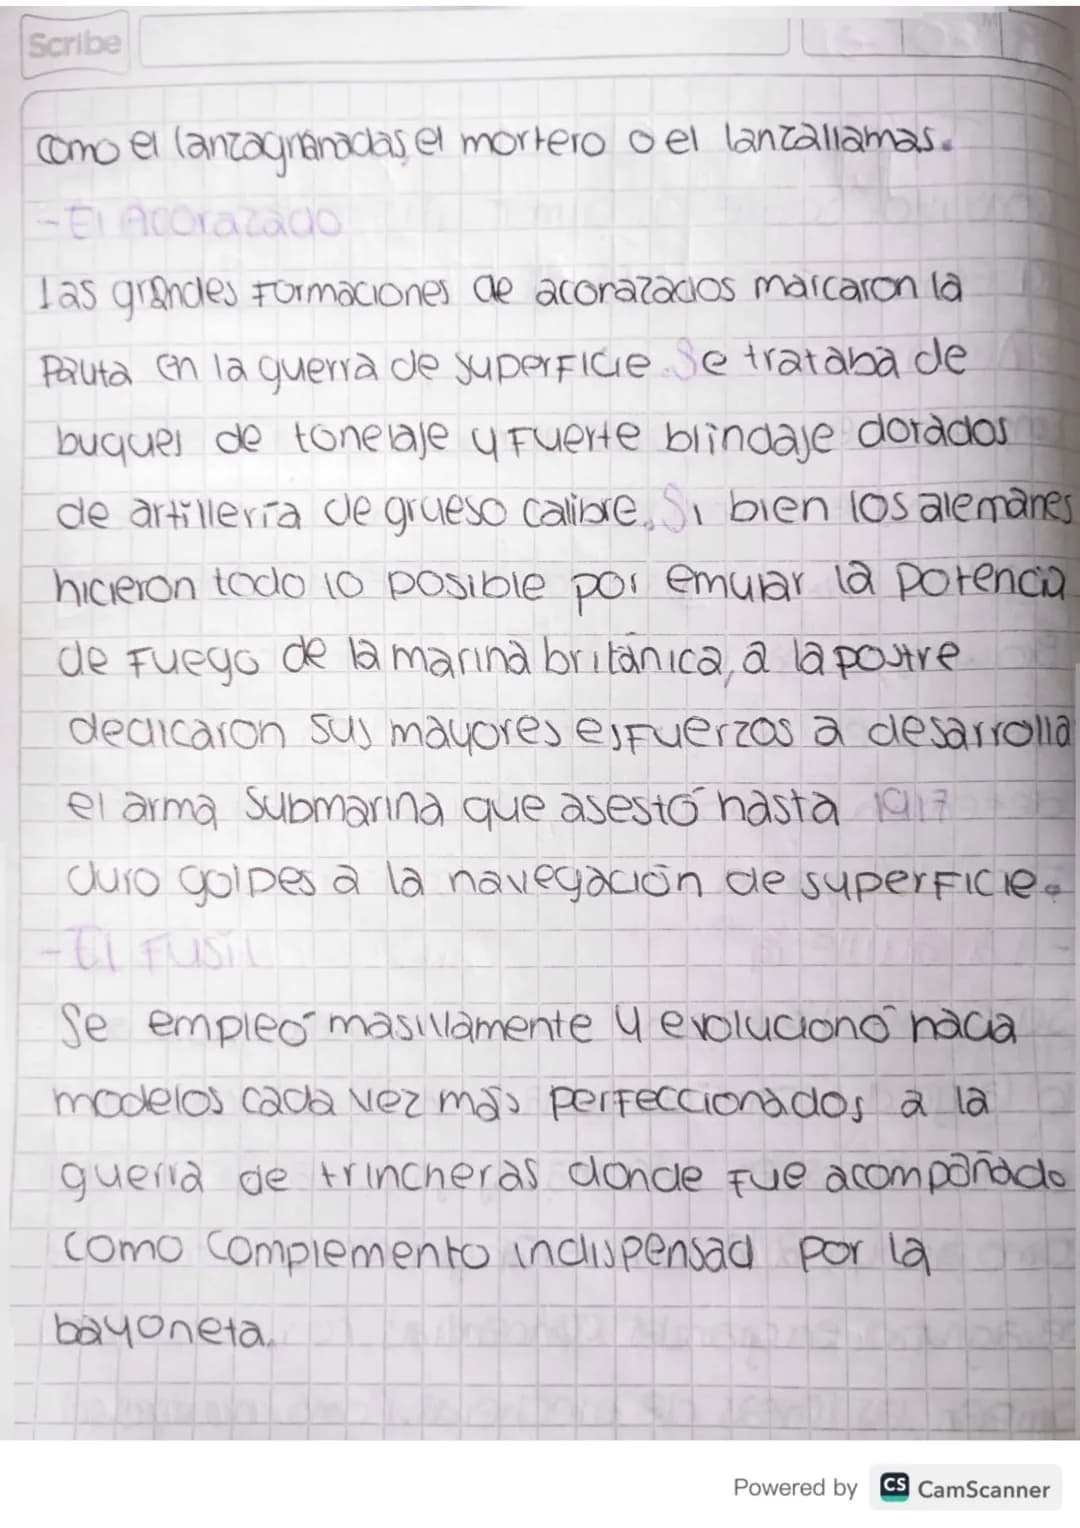 Scribe
como el lanzagranadas, el mortero o el lanzallamas.
-El Acorazado
las grandes formaciones de acorazados marcaron la
Pauta en la guerra de superficie. Se trataba de
buques de tonelaje y fuerte blindaje dorados
de artillería de grueso calibre. Si bien los alemanes
hicieron todo lo posible por emular la potencia
de fuego de la marina británica, a la postre
dedicaron sus mayores esfuerzos a desarrolla
el arma submarina que asestó hasta 1917
duro golpes a la navegación de superficie.
-El fusil
Se empleó masivamente y evolucionó hacia
modelos cada vez más perfeccionados a la
guerra de trincheras donde fue acompañado
como complemento indispensad por la
bayoneta.
Powered by CS CamScanner